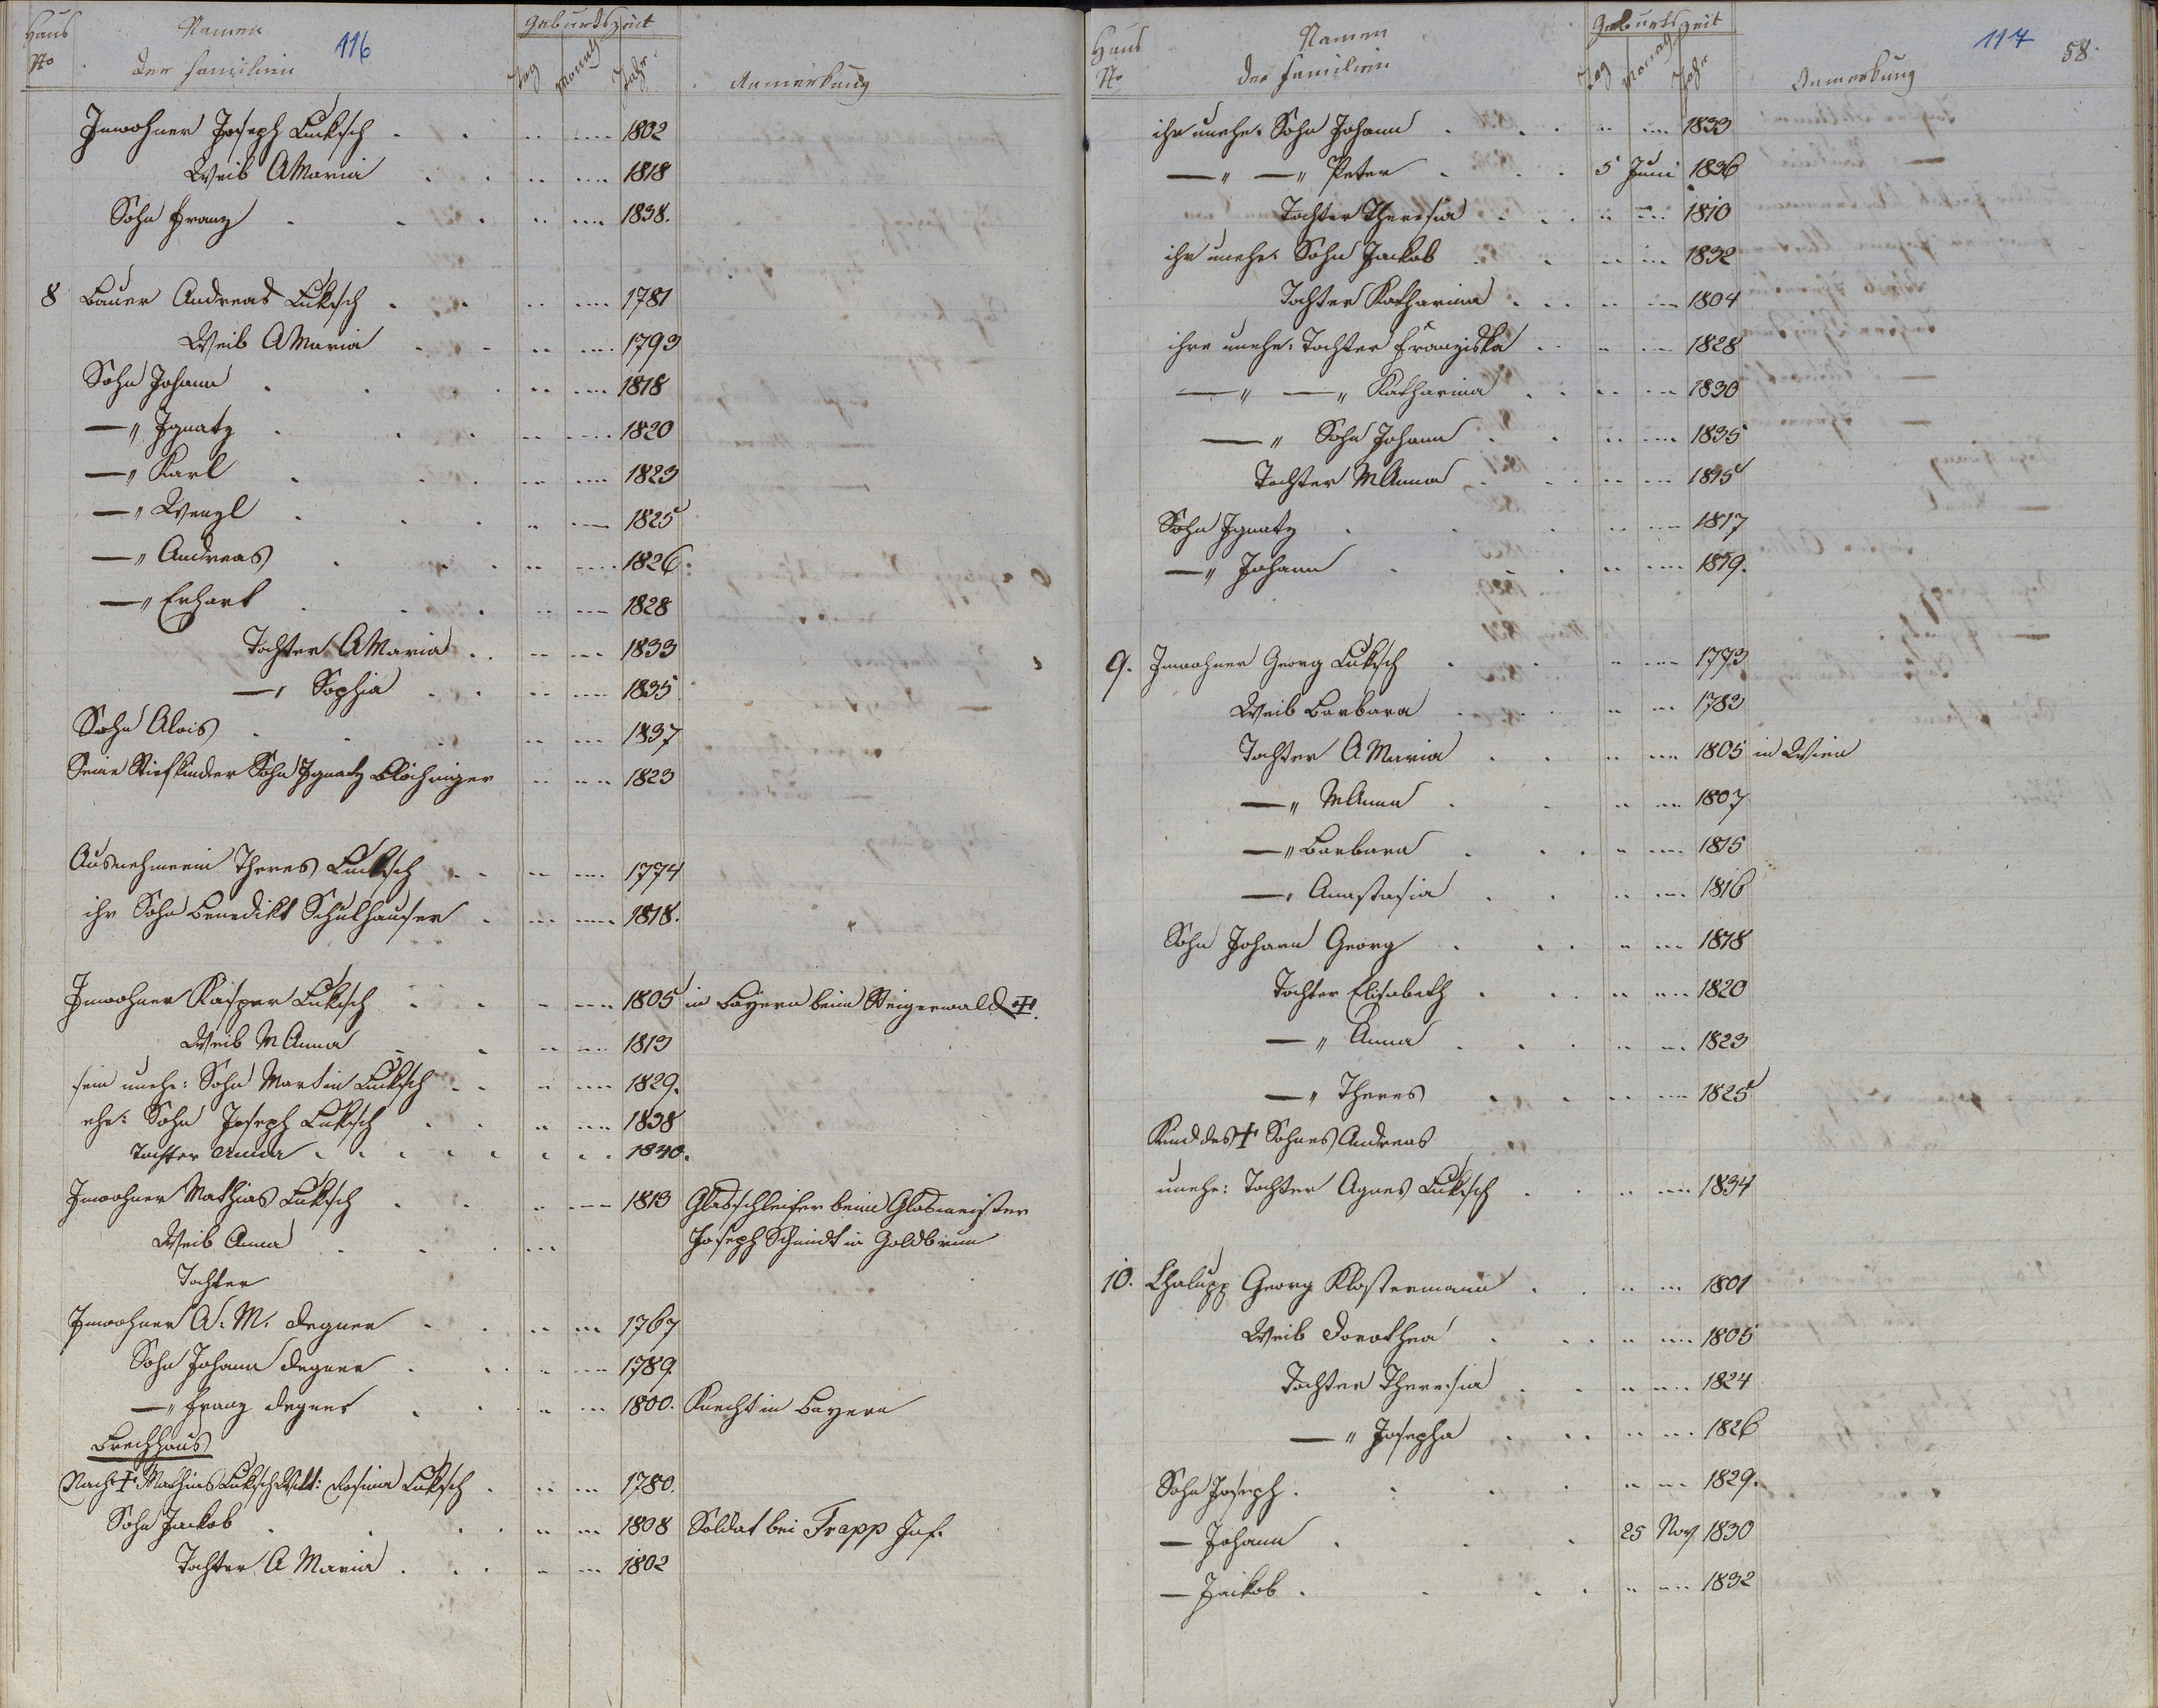 Haus No
Namen der Familien
116
Geburtszeit
Tag Monath Jahr
Anmerkung
Inwohner Joseph Lucksch . . 1802
Weib AMaria . . 1818
Sohn Franz . . . 1838.
8 Bauer Andreas Luksch . . 1781
Weib AMaria . . 1793
Sohn Johann . . . 1818
—" Ignatz . . . 1820
—" Karl . . . 1823
—" Wenzl . . . 1825
—" Andreas . . . 1826.
—" Erhart . . . 1828
Tochter AMaria . . 1833
—" Sophia . . 1835
Sohn Alois . . . 1837
Seine Stiefkinder Sohn Ignatz Blöchinger 1823
Ausnehmerin Theres Lucksch . . 1774
ihr Sohn Benedikt Schulhauser . 1818.
Inwohner Kaspar Luksch . . 1805 in Bayern beim Steigerwald †.
Weib MAnna . . 1813
sein unehe: Sohn Martin Lucksch . . 1829.
ehe: Sohn Joseph Luksch . . 1838
Tochter Anna . . . . . . . 1840.
Inwohner Mathias Luksch . . 1813 Glasschleifer beim Glasmeister
Weib Anna . . . Joseph Schmidt in Goldbrunn
Tochter
Inwohner A. M. Degner . . 1767
Sohn Johann Degner . . . 1789.
—" Franz Degner . . 1800. Knecht in Bayern
Brechhaus
Nach † Mathias Luksch Witt: Rosina Luksch . 1780.
Sohn Jackob . . . . 1808 Soldat bei Trapp Inf.
Tochter A Maria . . . 1802
Haus No
Namen der Familien
Geburtszeit
Tag Monath Jahr
Anmerkung
117
58.
ihr unehe: Sohn Johann . . . 1833
—" —" Peter . . . 5 Juni 1836
Tochter Theresia . . . 1810
ihr unehe: Sohn Jackob . . 1832
Tochter Katharina . . . 1804
ihre unehe: Tochter Franziska . . 1828
—" —" Katharina . . 1830
—" Sohn Johann . . 1835
Tochter MAnna . . . 1815
Sohn Ignatz . . . 1817
—" Johann . . . 1819.
9. Inwohner Georg Luksch . . 1773
Weib Barbara . . . 1782
Tochter A Maria . . 1805 in Wien
—" MAnna . . 1807
—" Barbara . . . 1815
—" Anastasia . . 1816
Sohn Johann Georg . . . 1818
Tochter Elisabeth . . . 1820
—" Anna . . . 1823
—" Theres . . 1825
Kind des † Sohnes Andreas
unehe: Tochter Agnes Luksch . . 1834
10. Chalupp Georg Klostermann . . 1801
Weib Dorothea . . . 1805
Tochter Theresia . . 1824
—" Josepha . . . 1826
Sohn Joseph . . . . 1829.
— Johann . . . 25 Nov 1830
— Jackob . . . . 1832